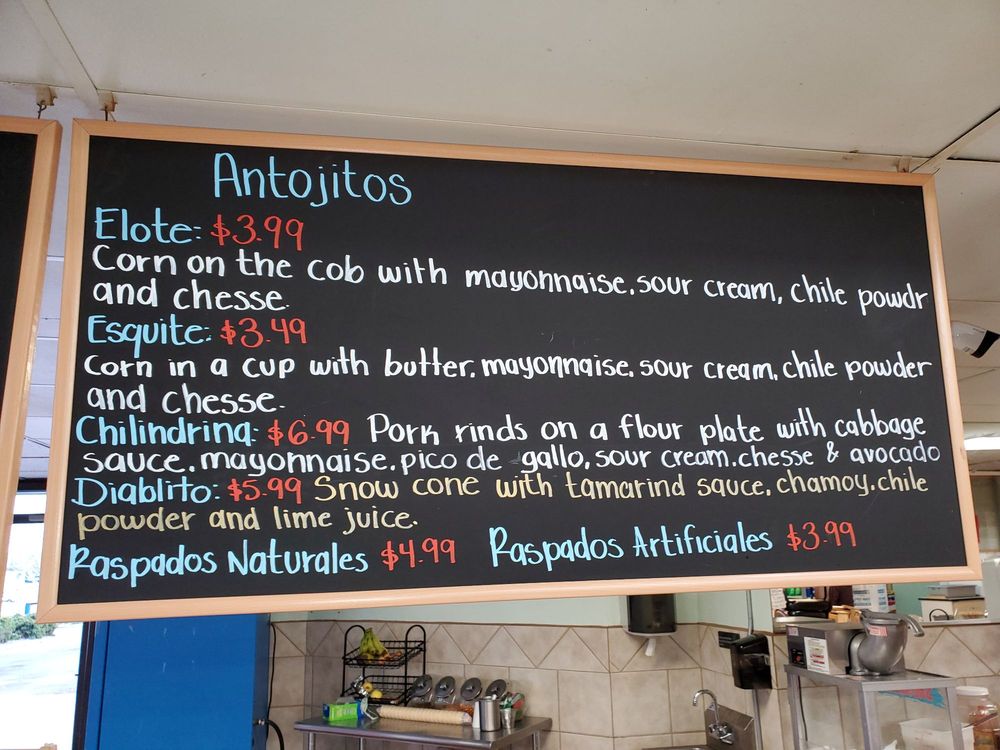 Antojitos
Elote: $3.99
Corn on the cob with mayonnaise, sour cream, chile powdr
and chesse.
Esquite: $3.49
Corn in a cup with butter, mayonnaise, sour cream, chile powder
and chesse.
Chilindrina: $6.99 Pork rinds on a flour plate with cabbage
sauce, mayonnaise, pico de gallo, sour cream, chesse & avocado
Diablito: $5.99 Snow cone with tamarind sauce, chamoy, chile
powder and lime juice.
Raspados Naturales $4.99 Raspados Artificiales $3.99